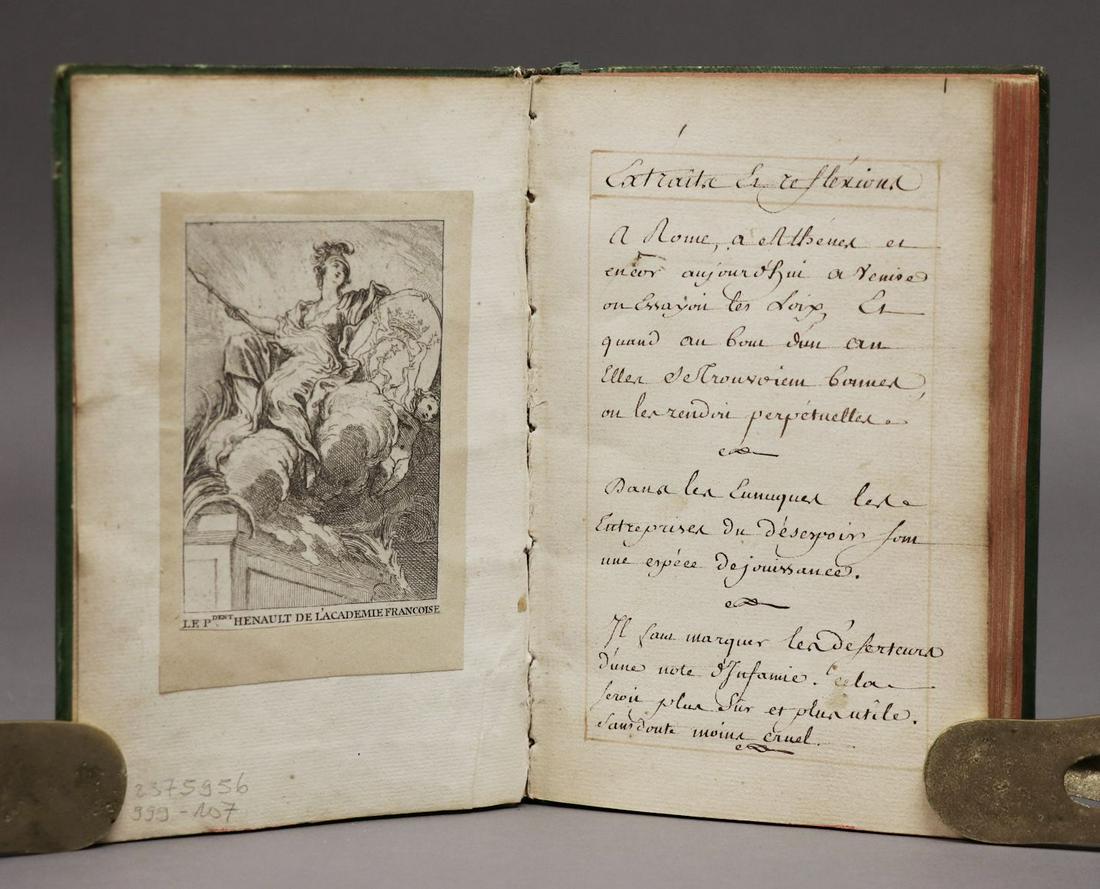 LE P.DENT HENAULT DE L'ACADEMIE FRANCOISE
2375956
999-107
1
Extraits Et refléxions
A Rome, a Athénes et
encor aujourd'hui a Venise
on Essayoit les Loix, Et
quand au bout d'un an
Elles se Trouvoient bonnes,
on les rendoit perpétuelles.
Dans les Eunuques les
Entreprises du désespoir sont
une espéce de jouissance.
Il faut marquer les déserteurs
d'une note d'Infamie. cela
seroit plus Sûr et plus utile.
sans doute moins cruel.